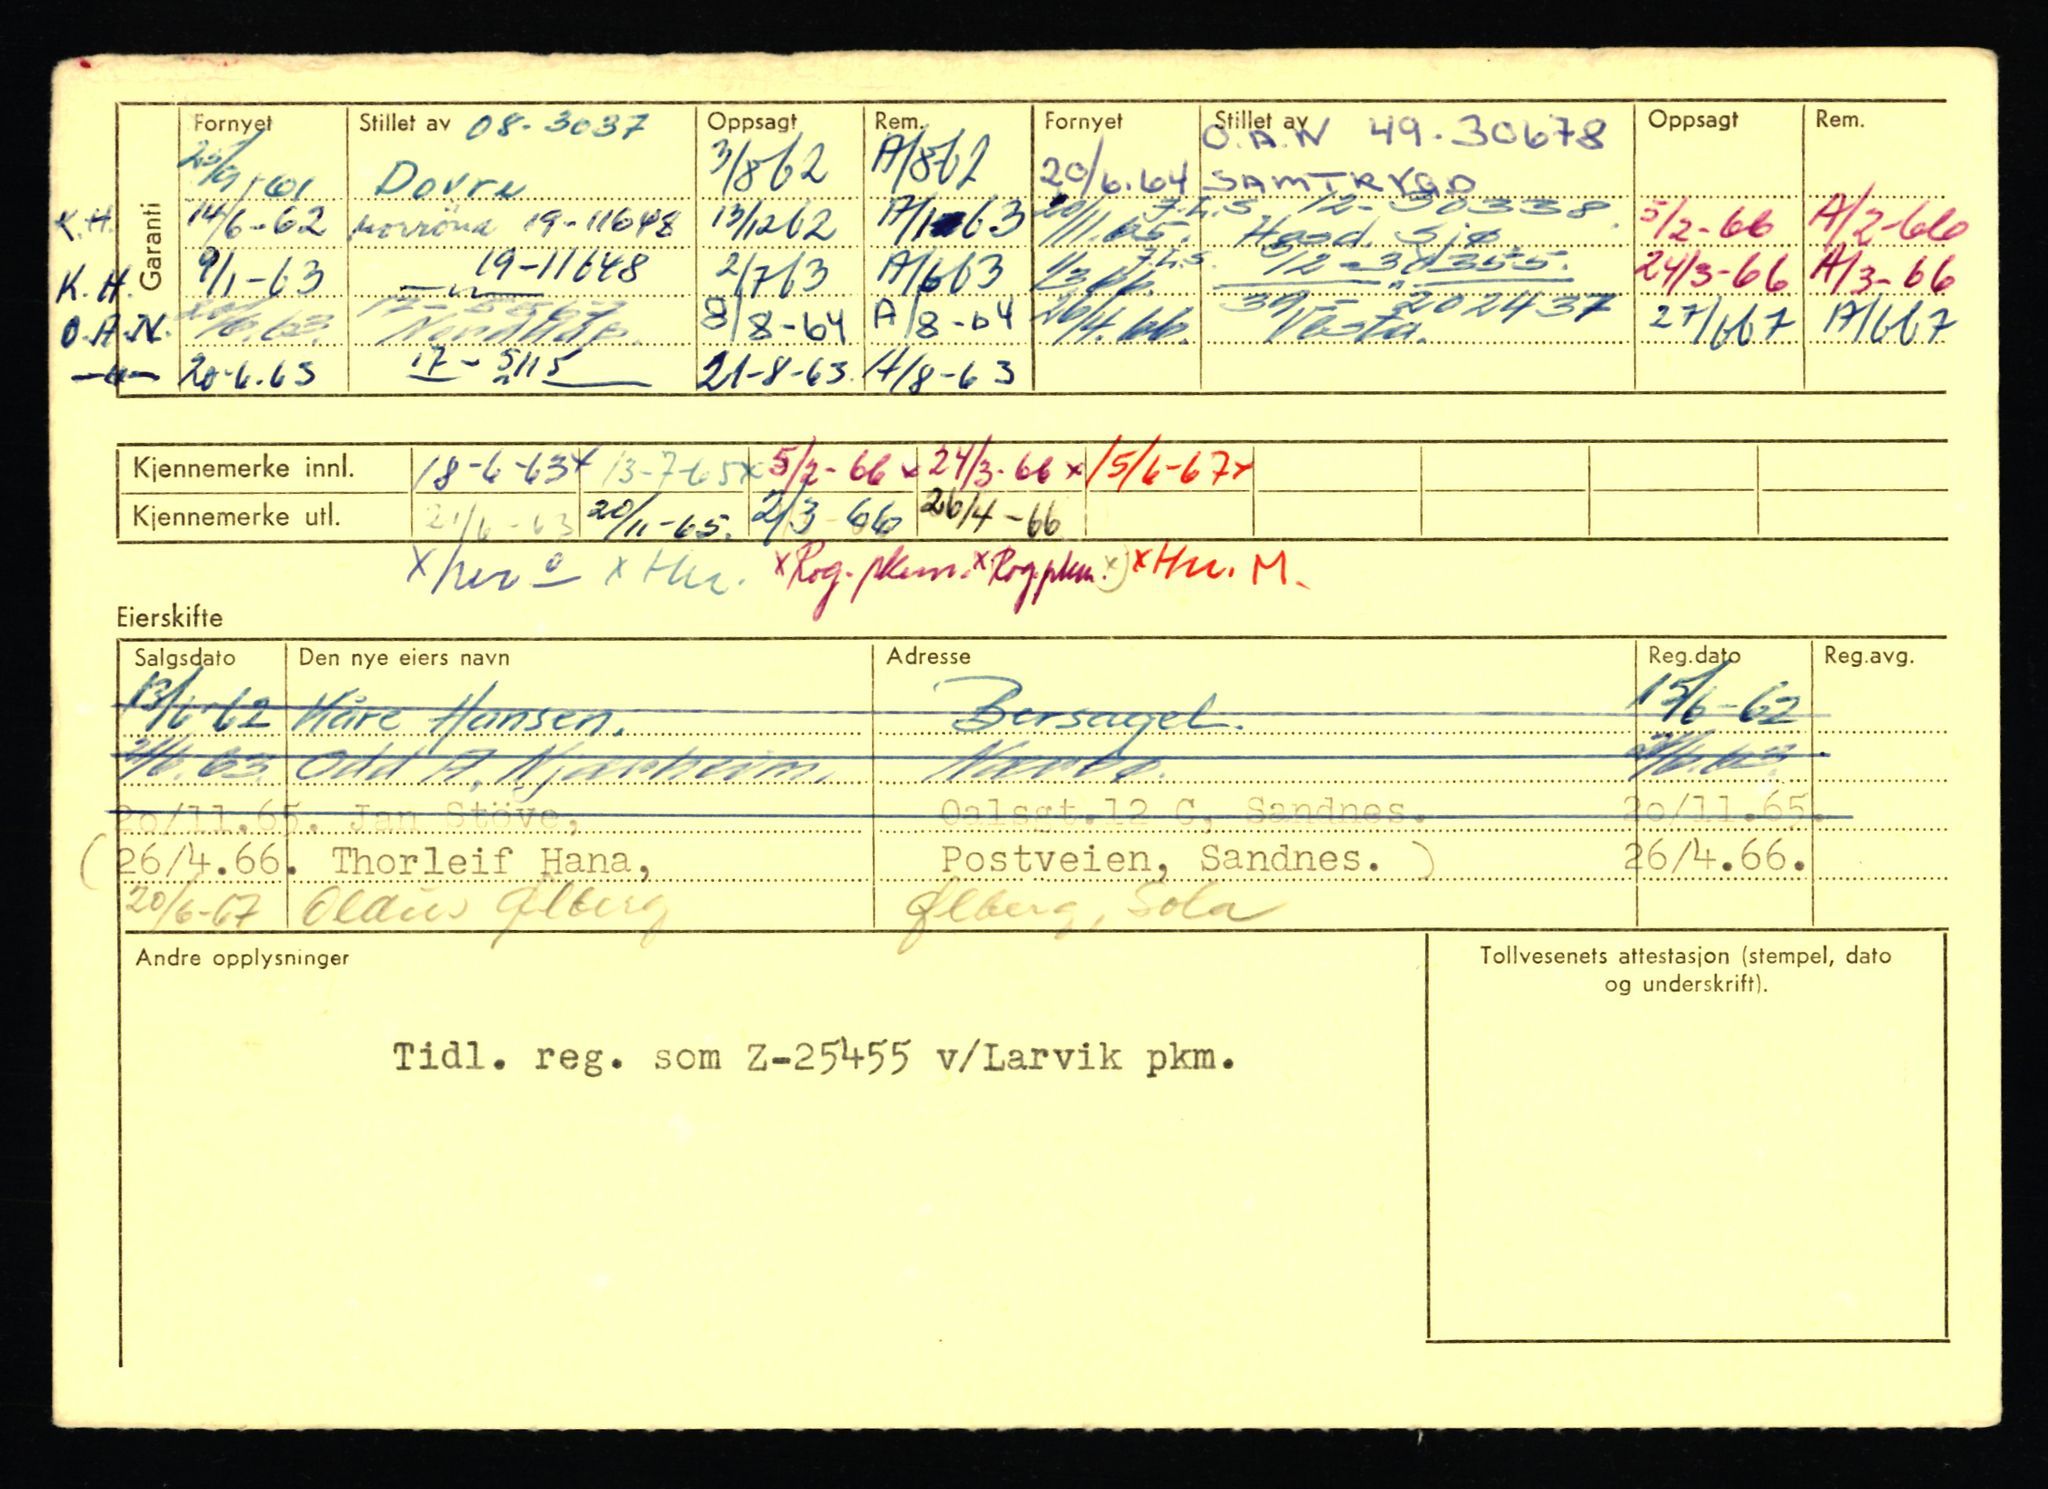 Garanti
Fornyet Stillet av 08-3037 Oppsagt Rem. Fornyet Stillet av O.A.N 49-30678 Oppsagt Rem.
Dovre 3/8 62 A/8 62 20/6.64 SAMTRYGD
K.H. 14/6-62 19-11648 13/12 62 5/2-66 A/2-66
K.H. 9/1-63 19-11648 2/7 63 A/6 63 24/3-66 A/3-66
O.A.N. 8/8-64 A/8-64 26/4.66. 39-202437 Vesta. 27/6 67 A/6 67
20-6.63 17-5115 21-8-63. A/8-63
Kjennemerke innl. 18-6-63x 13-7-65x 5/2-66 x 24/3-66 x 15/6-67x
Kjennemerke utl. 21/6-63 20/11-65. 2/3-66 26/4-66
x Hn. x Rog. pkm. x Rog. pkm. x) x Hn. M.
Eierskifte
Salgsdato Den nye eiers navn Adresse Reg.dato Reg.avg.
13/6-62 Kåre Hansen. Bersagel. 15/6-62
21/6.63. Odd A. Njærheim. Nærbø. 21/6.63.
20/11.65. Jan Stöve, Oalsgt.12 C, Sandnes. 20/11.65.
(26/4.66. Thorleif Hana, Postveien, Sandnes.) 26/4.66.
20/6-67 Olaus Ølberg Ølberg, Sola
Andre opplysninger
Tollvesenets attestasjon (stempel, dato
og underskrift).
Tidl. reg. som Z-25455 v/Larvik pkm.